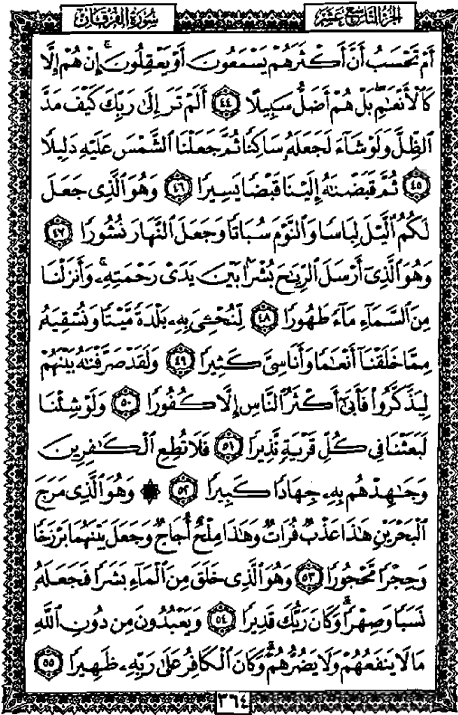 الجزء التاسع عشر سورة الفرقان
أَمْ تَحْسَبُ أَنَّ أَكْثَرَهُمْ يَسْمَعُونَ أَوْ يَعْقِلُونَ ۚ إِنْ هُمْ إِلَّا
كَالْأَنْعَامِ ۖ بَلْ هُمْ أَضَلُّ سَبِيلًا ٤٤ أَلَمْ تَرَ إِلَىٰ رَبِّكَ كَيْفَ مَدَّ
الظِّلَّ وَلَوْ شَاءَ لَجَعَلَهُ سَاكِنًا ثُمَّ جَعَلْنَا الشَّمْسَ عَلَيْهِ دَلِيلًا
٤٥ ثُمَّ قَبَضْنَاهُ إِلَيْنَا قَبْضًا يَسِيرًا ٤٦ وَهُوَ الَّذِي جَعَلَ
لَكُمُ الَّيْلَ لِبَاسًا وَالنَّوْمَ سُبَاتًا وَجَعَلَ النَّهَارَ نُشُورًا ٤٧
وَهُوَ الَّذِي أَرْسَلَ الرِّيَاحَ بُشْرًا بَيْنَ يَدَيْ رَحْمَتِهِ ۚ وَأَنْزَلْنَا
مِنَ السَّمَاءِ مَاءً طَهُورًا ٤٨ لِنُحْيِيَ بِهِ بَلْدَةً مَيْتًا وَنُسْقِيَهُ
مِمَّا خَلَقْنَا أَنْعَامًا وَأَنَاسِيَّ كَثِيرًا ٤٩ وَلَقَدْ صَرَّفْنَاهُ بَيْنَهُمْ
لِيَذَّكَّرُوا فَأَبَىٰ أَكْثَرُ النَّاسِ إِلَّا كُفُورًا ٥٠ وَلَوْ شِئْنَا
لَبَعَثْنَا فِي كُلِّ قَرْيَةٍ نَذِيرًا ٥١ فَلَا تُطِعِ الْكَافِرِينَ
وَجَاهِدْهُمْ بِهِ جِهَادًا كَبِيرًا ٥٢ ۞ وَهُوَ الَّذِي مَرَجَ
الْبَحْرَيْنِ هَٰذَا عَذْبٌ فُرَاتٌ وَهَٰذَا مِلْحٌ أُجَاجٌ وَجَعَلَ بَيْنَهُمَا بَرْزَخًا
وَحِجْرًا مَحْجُورًا ٥٣ وَهُوَ الَّذِي خَلَقَ مِنَ الْمَاءِ بَشَرًا فَجَعَلَهُ
نَسَبًا وَصِهْرًا ۗ وَكَانَ رَبُّكَ قَدِيرًا ٥٤ وَيَعْبُدُونَ مِنْ دُونِ اللَّهِ
مَا لَا يَنْفَعُهُمْ وَلَا يَضُرُّهُمْ ۗ وَكَانَ الْكَافِرُ عَلَىٰ رَبِّهِ ظَهِيرًا ٥٥
٣٦٤